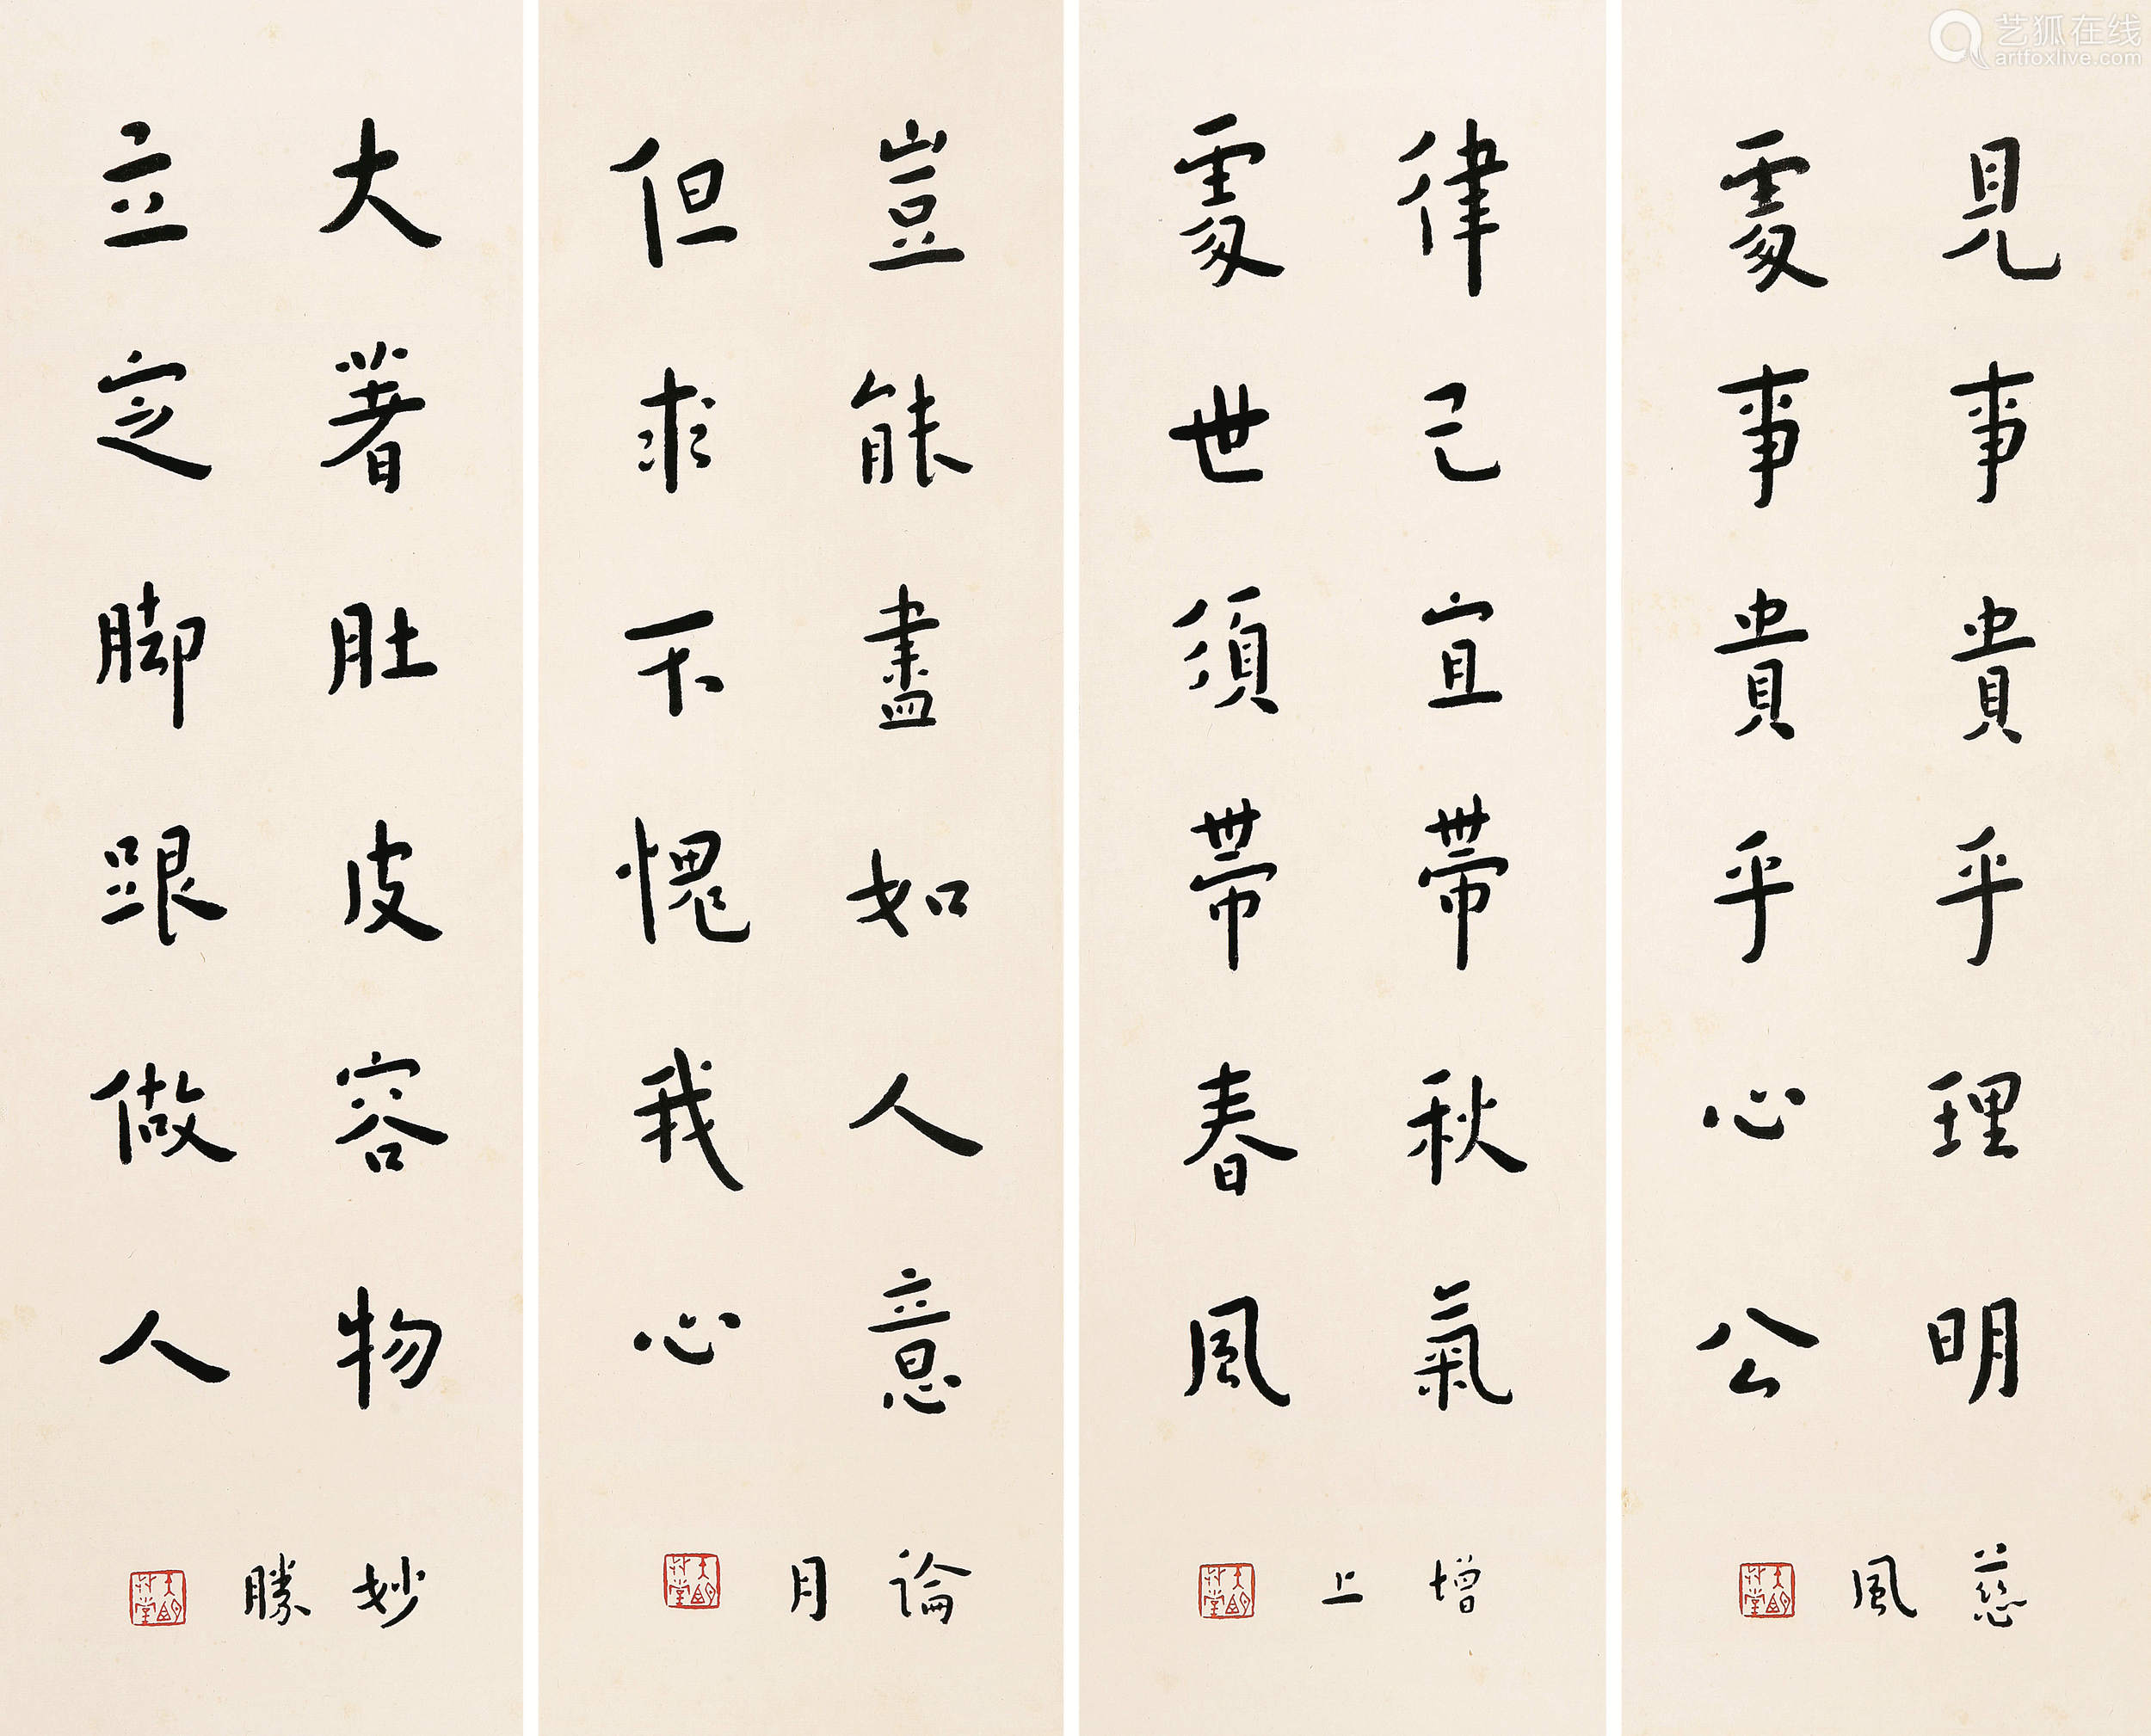 見事貴乎理明
處事貴乎心公
慈風
律己宜帶秋氣
處世須帶春風
增上
豈能盡如人意
但求不愧我心
論月
大著肚皮容物
立定脚跟做人
妙勝
艺狐在线
artfoxlive.com